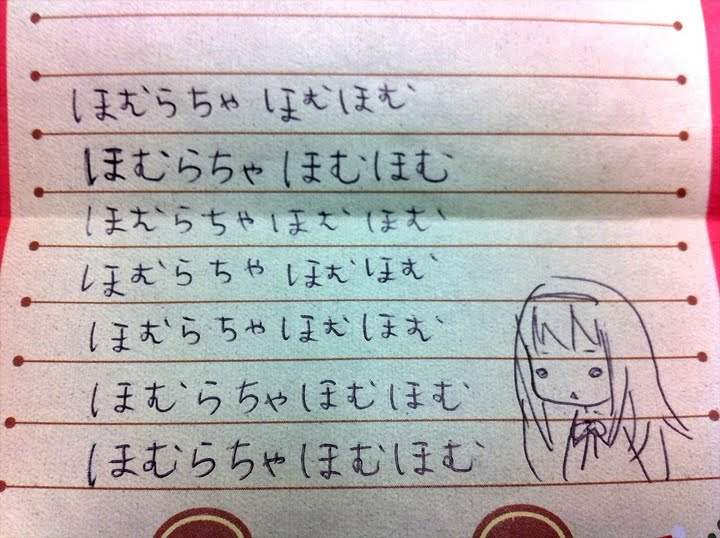 ほむらちゃ ほむほむ
ほむらちゃ ほむほむ
ほむらちゃ ほむ ほむ
ほむらちゃ ほむほむ
ほむらちゃ ほむほむ
ほむらちゃ ほむほむ
ほむらちゃ ほむほむ